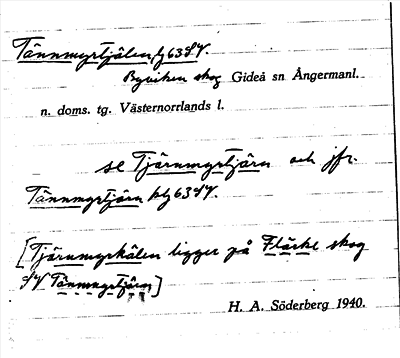 Tännmyrtjälen 63SV.
Byviken skog Gideå sn Ångermanl.
n. doms. tg. Västernorrlands l.
se Tjärnmyrtjärn och jfr.
Tännmyrtjärn 63SV.
[Tjärnmyrkälen ligger på Fläcke skog
SV Tännmyrtjärn]
H. A. Söderberg 1940.